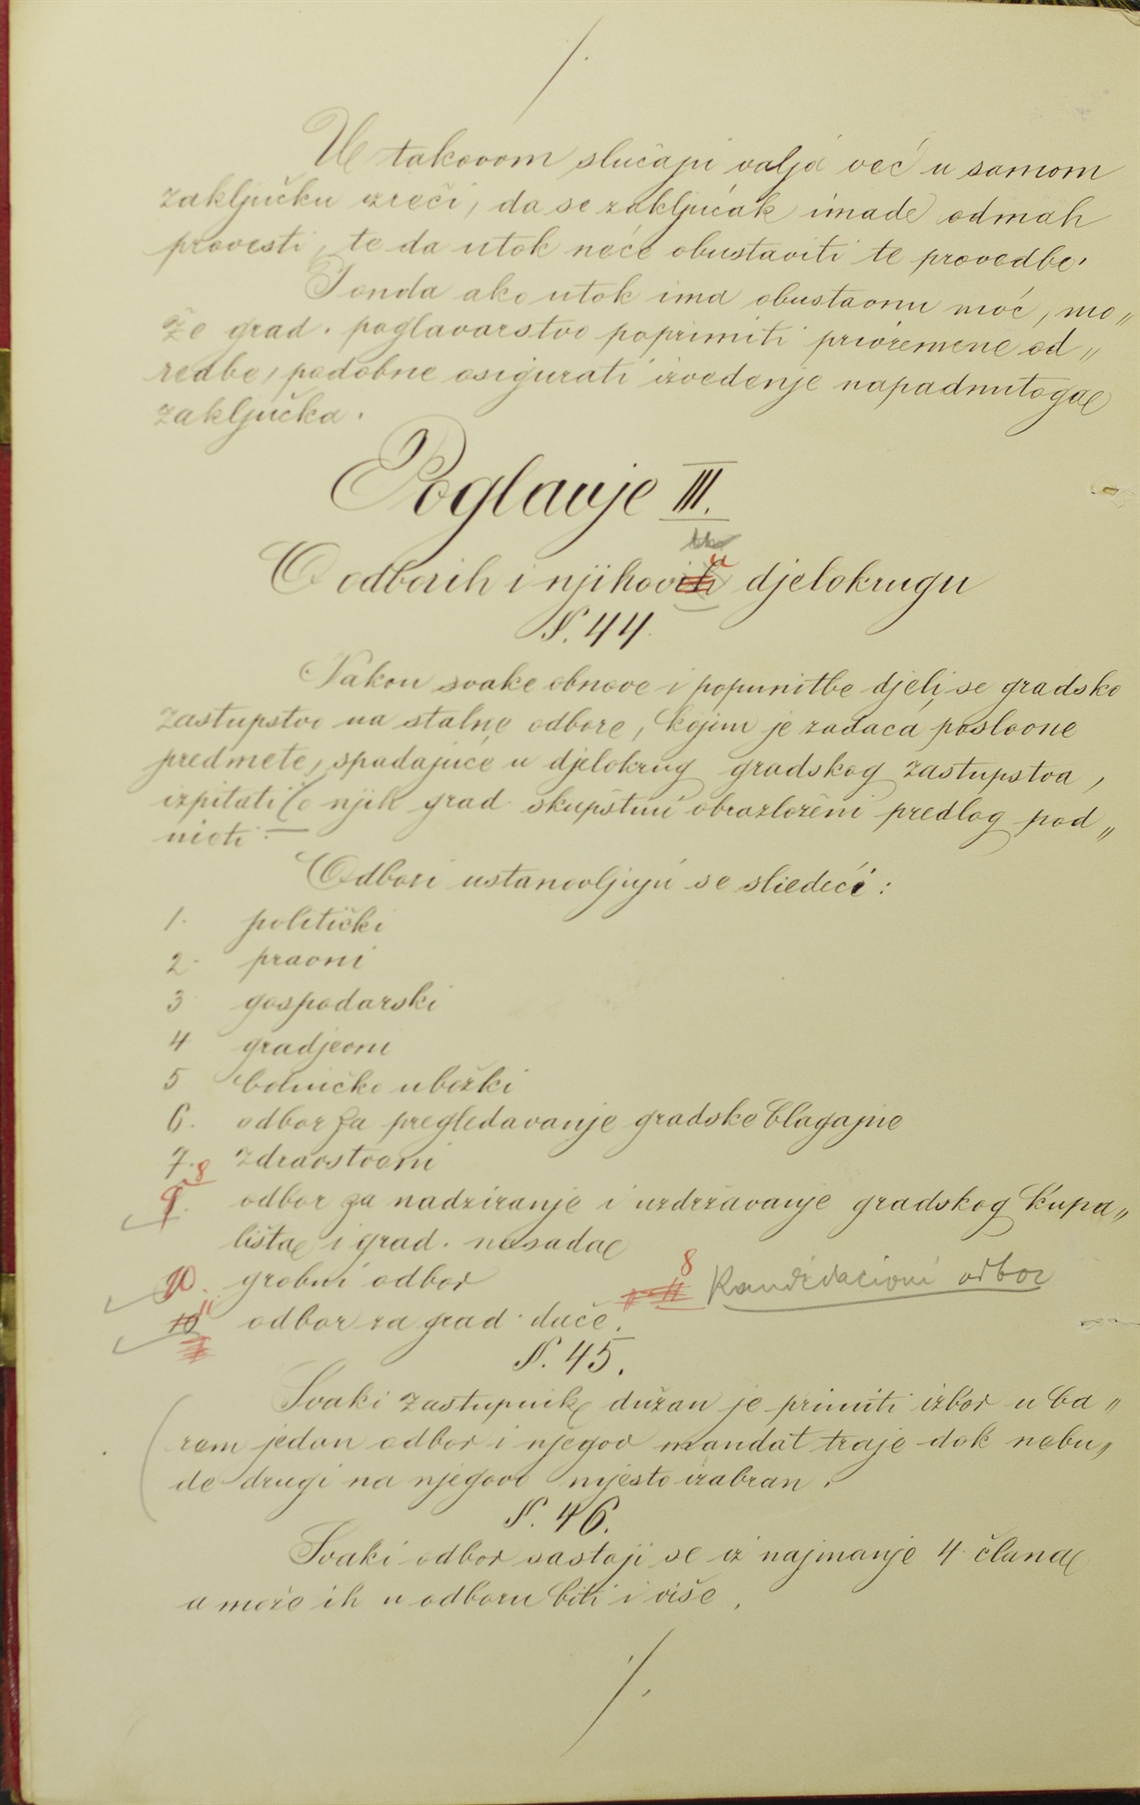 /.
U takovom slučaju valja već u samom
zaključku izreći, da se zaključak imade odmah
provesti, te da utok neće obustaviti te provedbe.
I onda ako utok ima obustavnu moć, mo„
že grad. poglavarstvo poprimiti privremene od„
redbe, podobne osigurati izvedenje napadnutoga
zaključka.
Poglavje III.
O odborih i njihovu djelokrugu
§. 44.
Nakon svake obnove i popunitbe djeli se gradsko
zastupstvo na stalne odbore, kojim je zadaća poslovne
predmete, spadajuće u djelokrug gradskog zastupstva,
izpitati o njih grad. skupštini obrazloženi predlog pod„
nieti.
Odbori ustanovljuju se sliedeći:
1. politički
2. pravni
3 gospodarski
4 gradjevni
5 bolničko ubožki
6. odbor za pregledavanje gradske blagajne
7. zdravstveni
8
9. odbor za nadziranje i uzdržavanje gradskog kupa„
lišta i grad. nasada
10. grobni odbor
8 Kandidacioni odbor
11
10 odbor za grad. daće.
§. 45.
Svaki zastupnik dužan je primiti izbor u ba„
rem jedan odbor i njegov mandat traje dok nebu„
de drugi na njegovo mjesto izabran.
§. 46.
Svaki odbor sastoji se iz najmanje 4 člana
a može ih u odboru biti i više.
/.